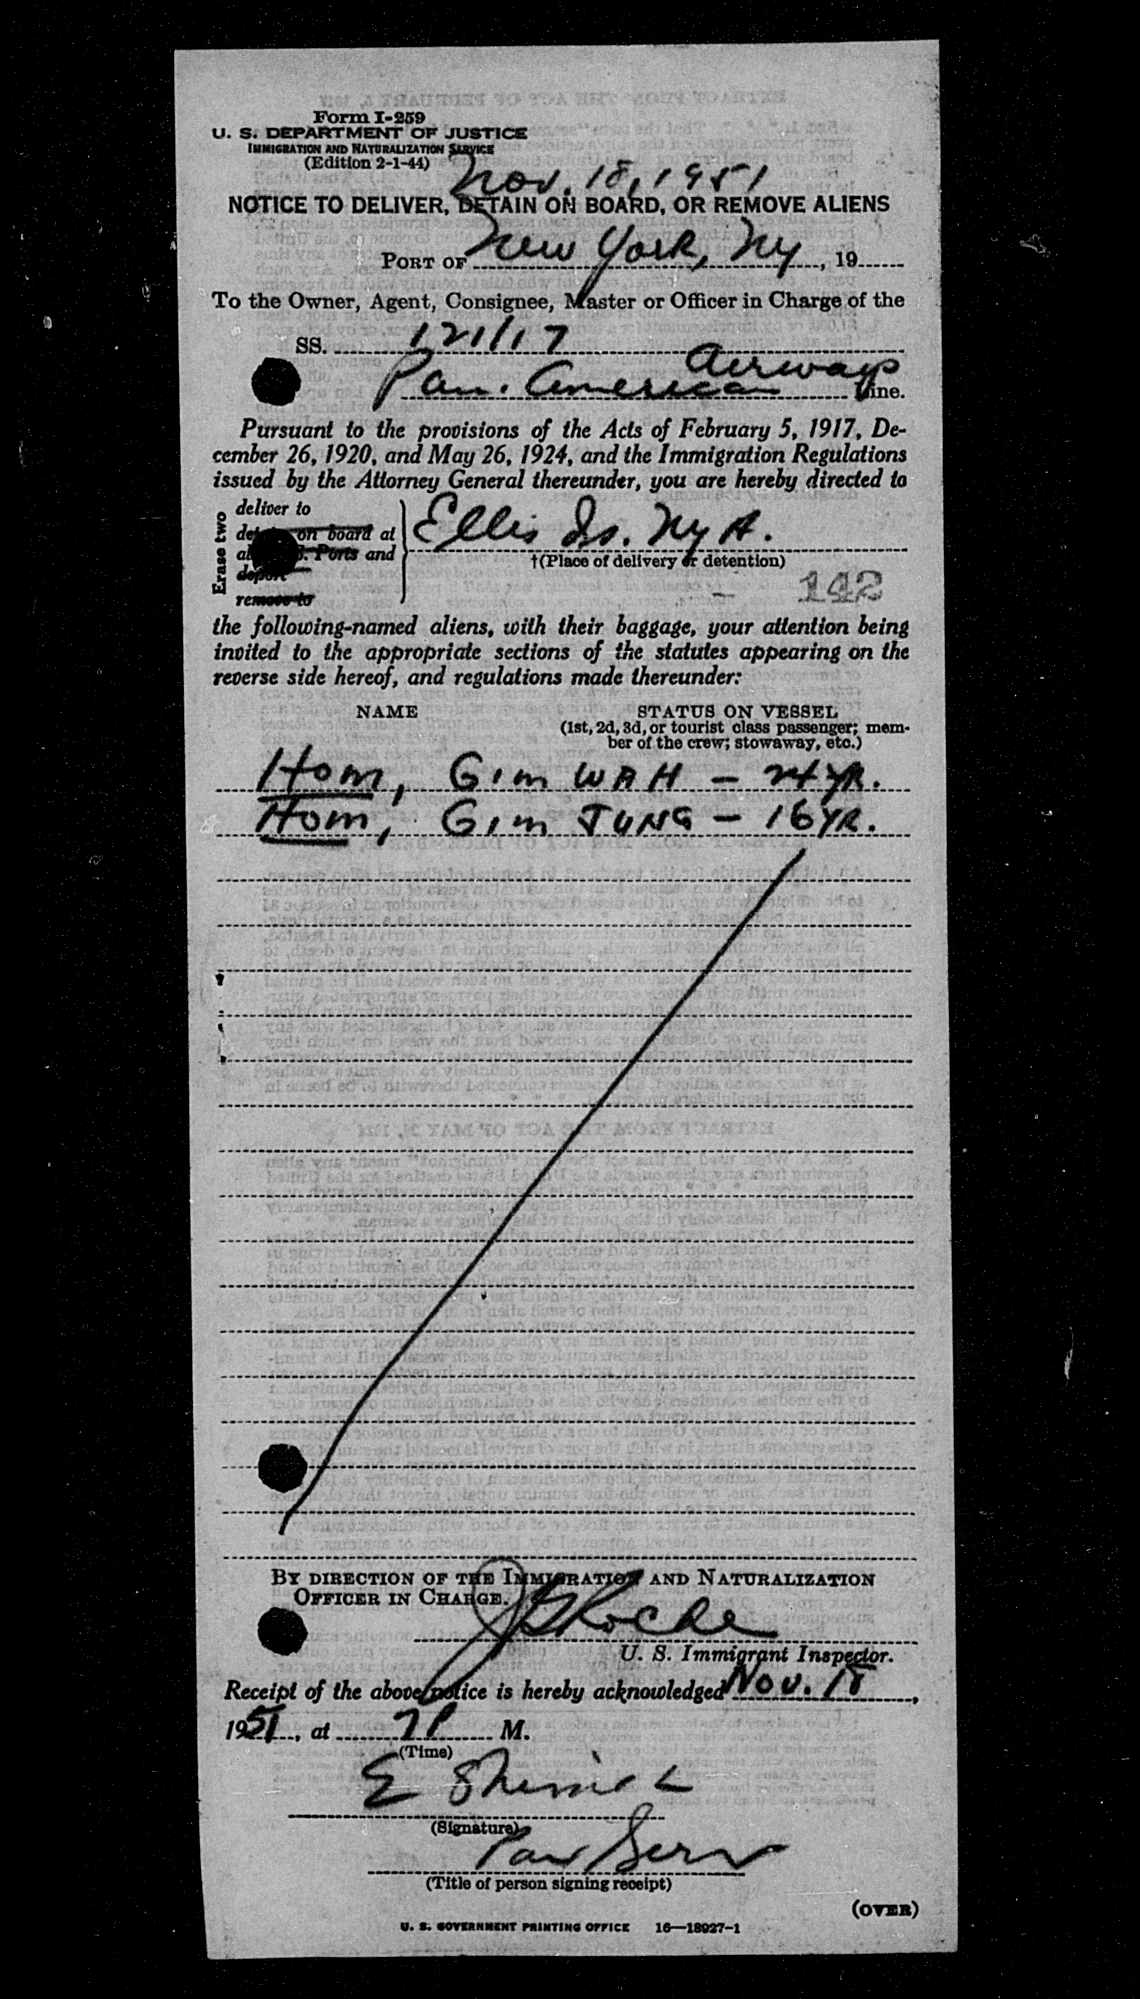 Form I-259
U. S. DEPARTMENT OF JUSTICE
IMMIGRATION AND NATURALIZATION SERVICE
(Edition 2-1-44)
Nov. 18, 1951
NOTICE TO DELIVER, DETAIN ON BOARD, OR REMOVE ALIENS
PORT OF New York, Ny, 19
To the Owner, Agent, Consignee, Master or Officer in Charge of the
SS. 121/17
Pan. American Airways Line.
Pursuant to the provisions of the Acts of February 5, 1917, De-
cember 26, 1920, and May 26, 1924, and the Immigration Regulations
issued by the Attorney General thereunder, you are hereby directed to
Erase two
deliver to
on board at
Ports and
deport
remove to
Ellis Is. Ny H.
†(Place of delivery or detention)
142
the following-named aliens, with their baggage, your attention being
invited to the appropriate sections of the statutes appearing on the
reverse side hereof, and regulations made thereunder:
NAME STATUS ON VESSEL
(1st, 2d, 3d, or tourist class passenger; mem-
ber of the crew; stowaway, etc.)
Hom, Gim WAH - 24 YR.
Hom, Gim JUNG - 16 YR.
BY DIRECTION OF THE IMMIGRATION AND NATURALIZATION
OFFICER IN CHARGE.
Roche
U. S. Immigrant Inspector.
Receipt of the above notice is hereby acknowledged Nov. 18,
1951, at 7P M.
(Time)
E
(Signature)
Pan Serv
(Title of person signing receipt)
(OVER)
U. S. GOVERNMENT PRINTING OFFICE 16—18927-1